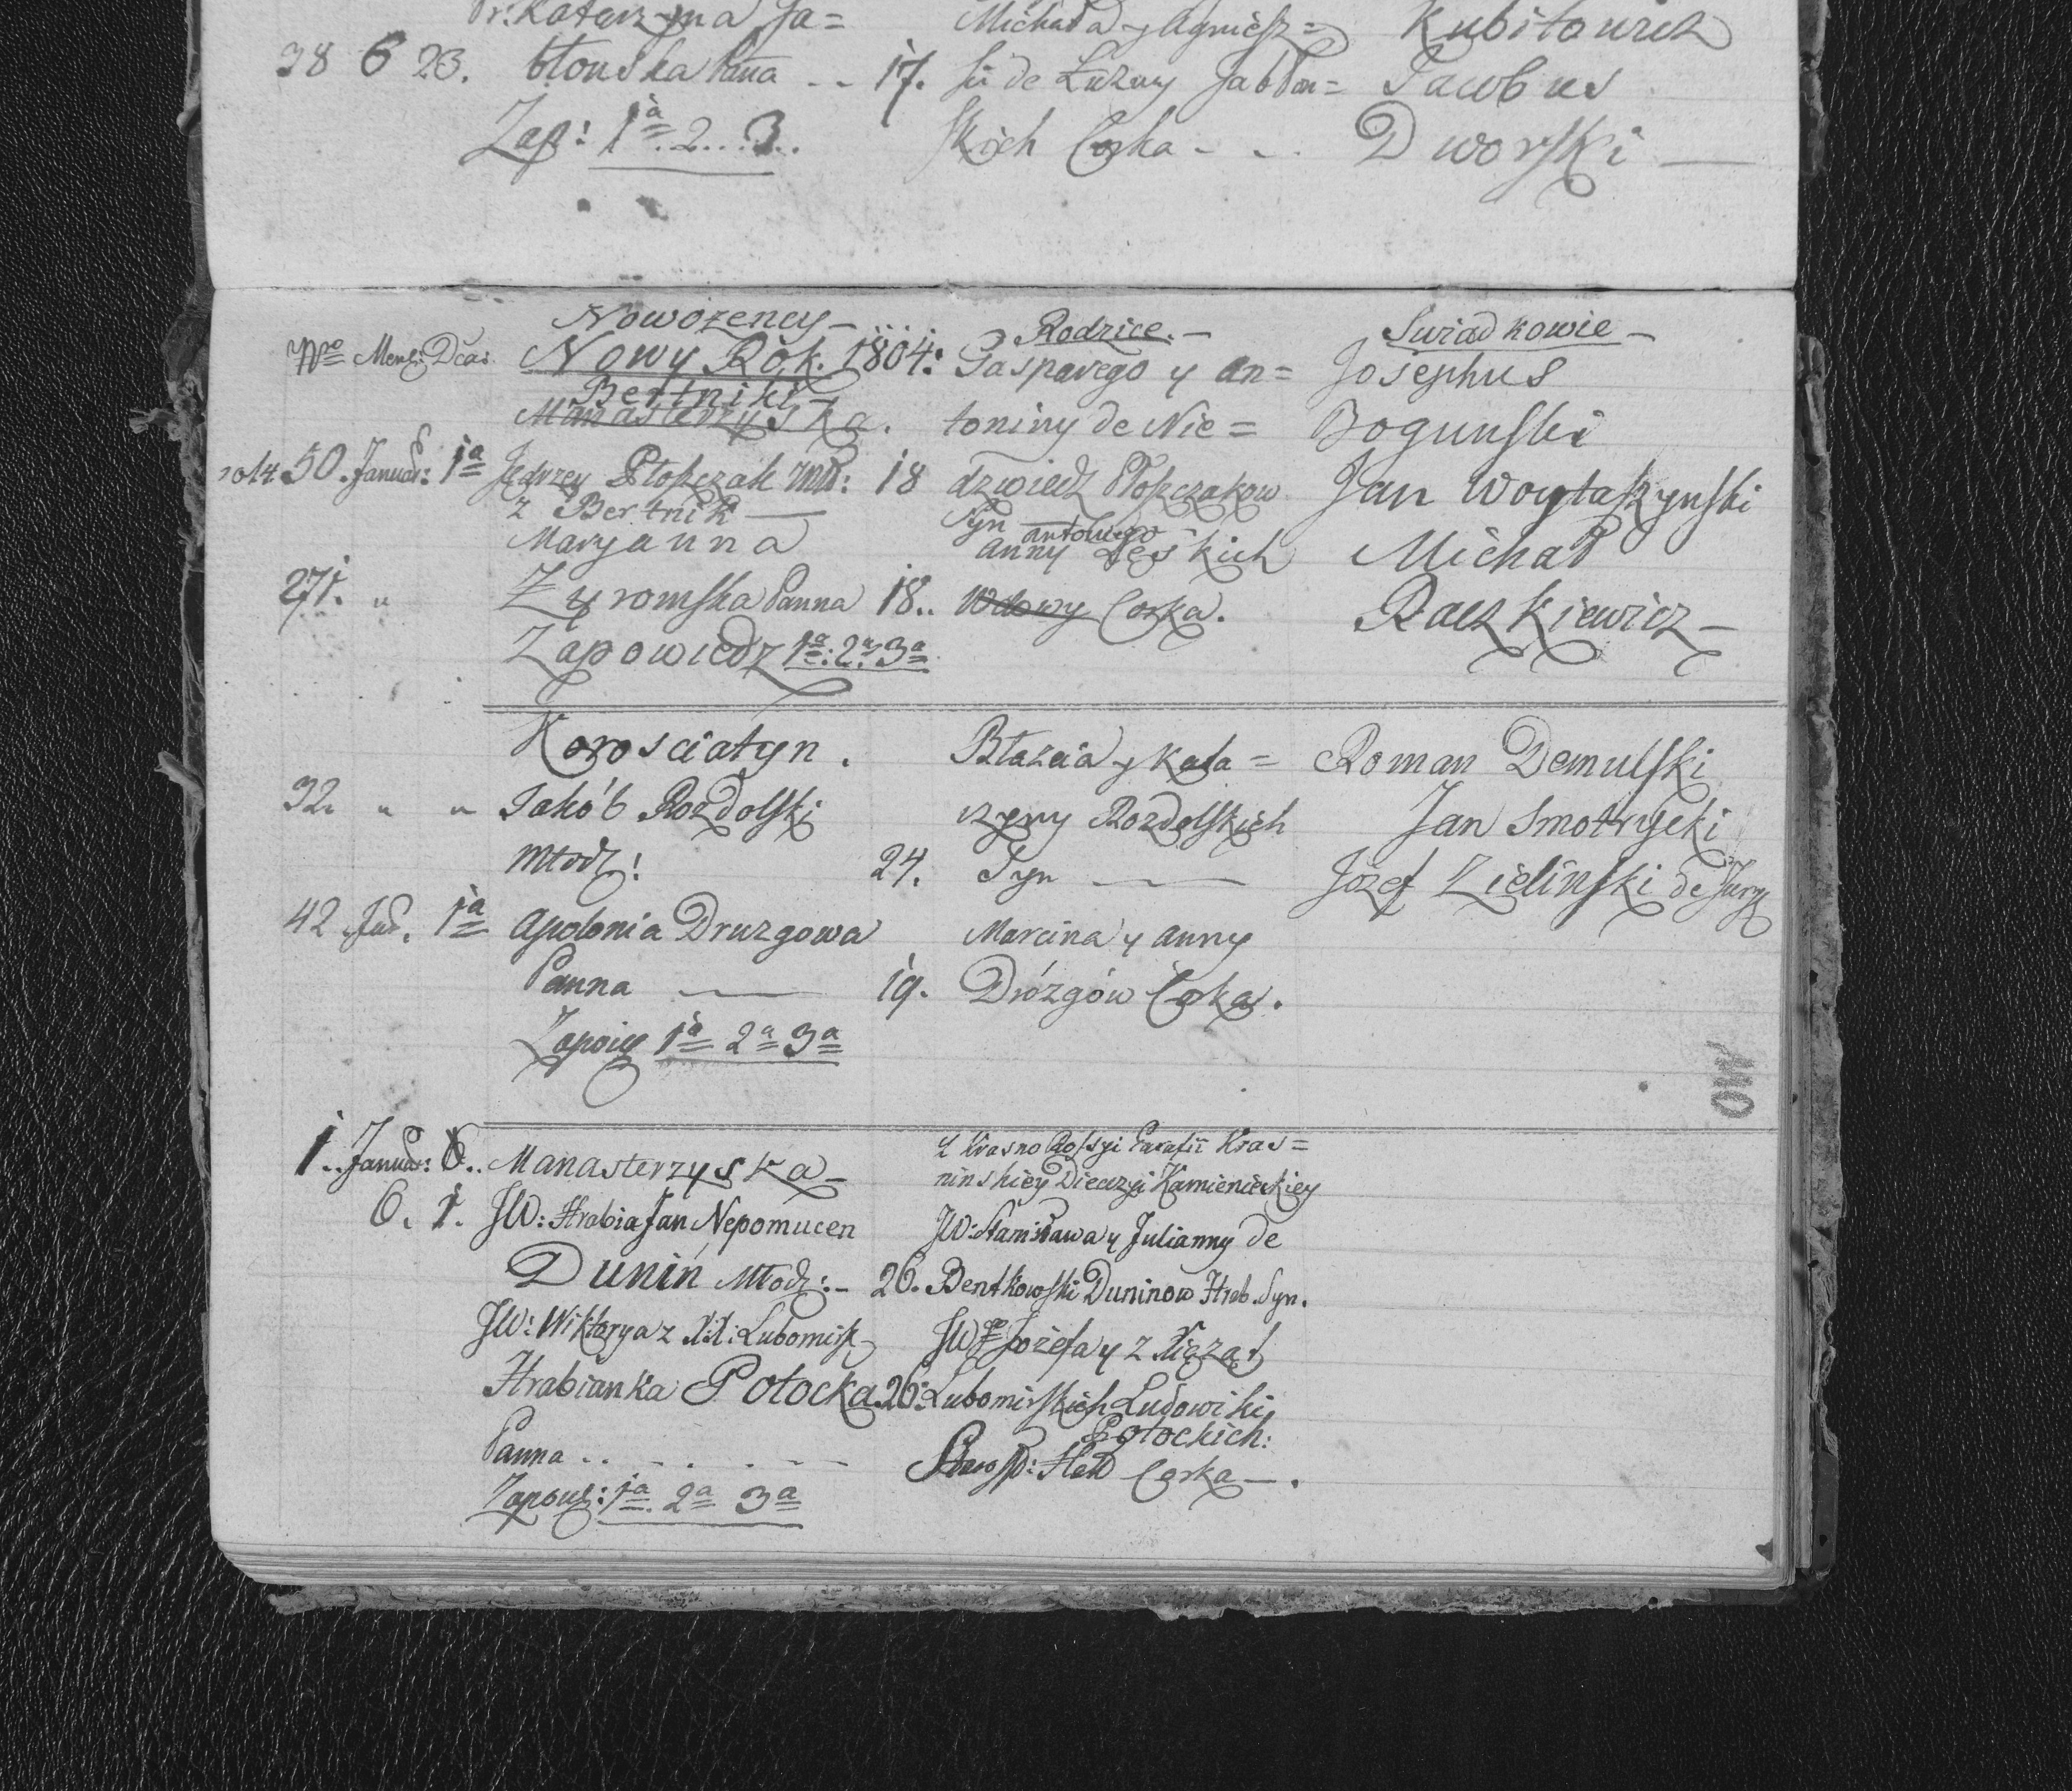 Katarzyna Ja= Michała y Agniesz= Kubitowicz
38 6 23. błonska Pana .. 17. ki de Luzny Jabłon= Jacobus
Zap: 1a 2.. 3.. skich Corka - .. Dworski —
Nowożency — Rodzice. — Swiadkowie —
Nro Mens: Dca: Nowy Rok. 1804: Gasparego y An= Josephus
Bertniki
Manasterzyska. toniny de Nie= Bogunski
50. Januar: 1a Jędrzey Płoszczak Młd: 18 dzwiedz Płoszczakow Jan Woytaszynski
z Bertnik — Syn —
Maryanna Antoniego Anny Zęskich Michał
271. " Zyromska Panna 18.. Wdowy Corka. Raczkiewicz —
Zapowiedz 1a: 2a 3a
Korosciatyn. Błażeia y Kata= Roman Demulski
32 " " Jakób Rozdolski rzyny Rozdolskich Jan Smotrycki
Młodz: 24. Syn — Jozef Zielinski de
42 Jad. 1a Apolonia Druzgowa Marcina y Anny
Panna — 19. Drózgów Corka.
Zapoię 1a 2a 3a
OW
1.. Januar: 6.. Manasterzyska — z Krasno Rossyi Parafii Kras=
ninskiey Diecezyi Kamienieckiey
6. 1. JW: Hrabia Jan Nepomucen JW: Stanisława y Julianny de
Dunin Młodz: - 26. Bentkowski Duninow Hrab. Syn.
JW: Wiktorya z XX: Lubomirs JW Jozefa y z Xiążąt
Hrabianka Potocka 26. Lubomirskich Ludowiki
Potockich:
Panna .. Corka —.
Zapowę: 1a 2a 3a